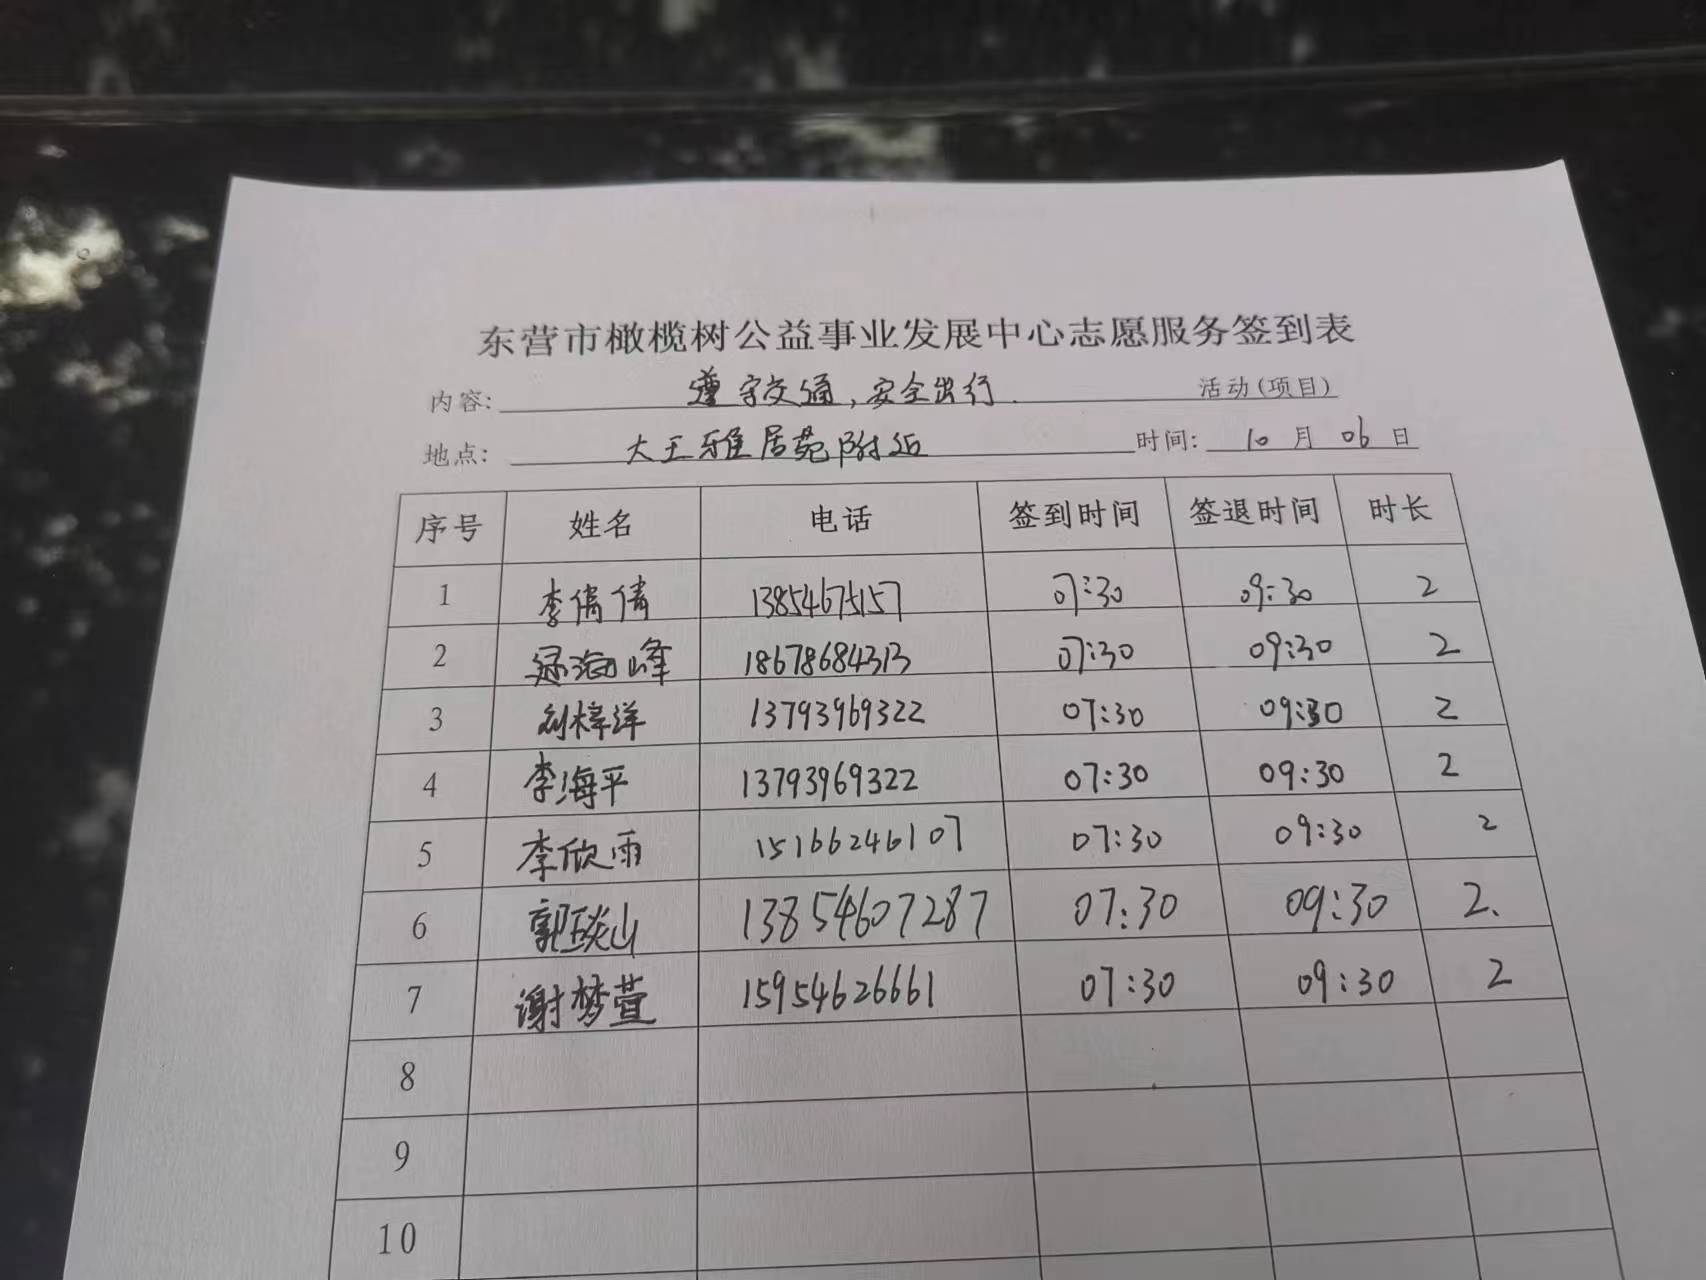 东营市橄榄树公益事业发展中心志愿服务签到表
内容: 遵守交通,安全出行. 活动(项目)
地点: 大王雅居苑附近 时间: 10月06日
序号 姓名 电话 签到时间 签退时间 时长
1 李倩倩 13854675157 07:30 09:30 2
2 海峰 18678684313 07:30 09:30 2
3 刘梓洋 13793969322 07:30 09:30 2
4 李海平 13793969322 07:30 09:30 2
5 李欣雨 15166246107 07:30 09:30 2
6 郭琰山 13854607287 07:30 09:30 2.
7 谢梦萱 15954626661 07:30 09:30 2
8
9
10